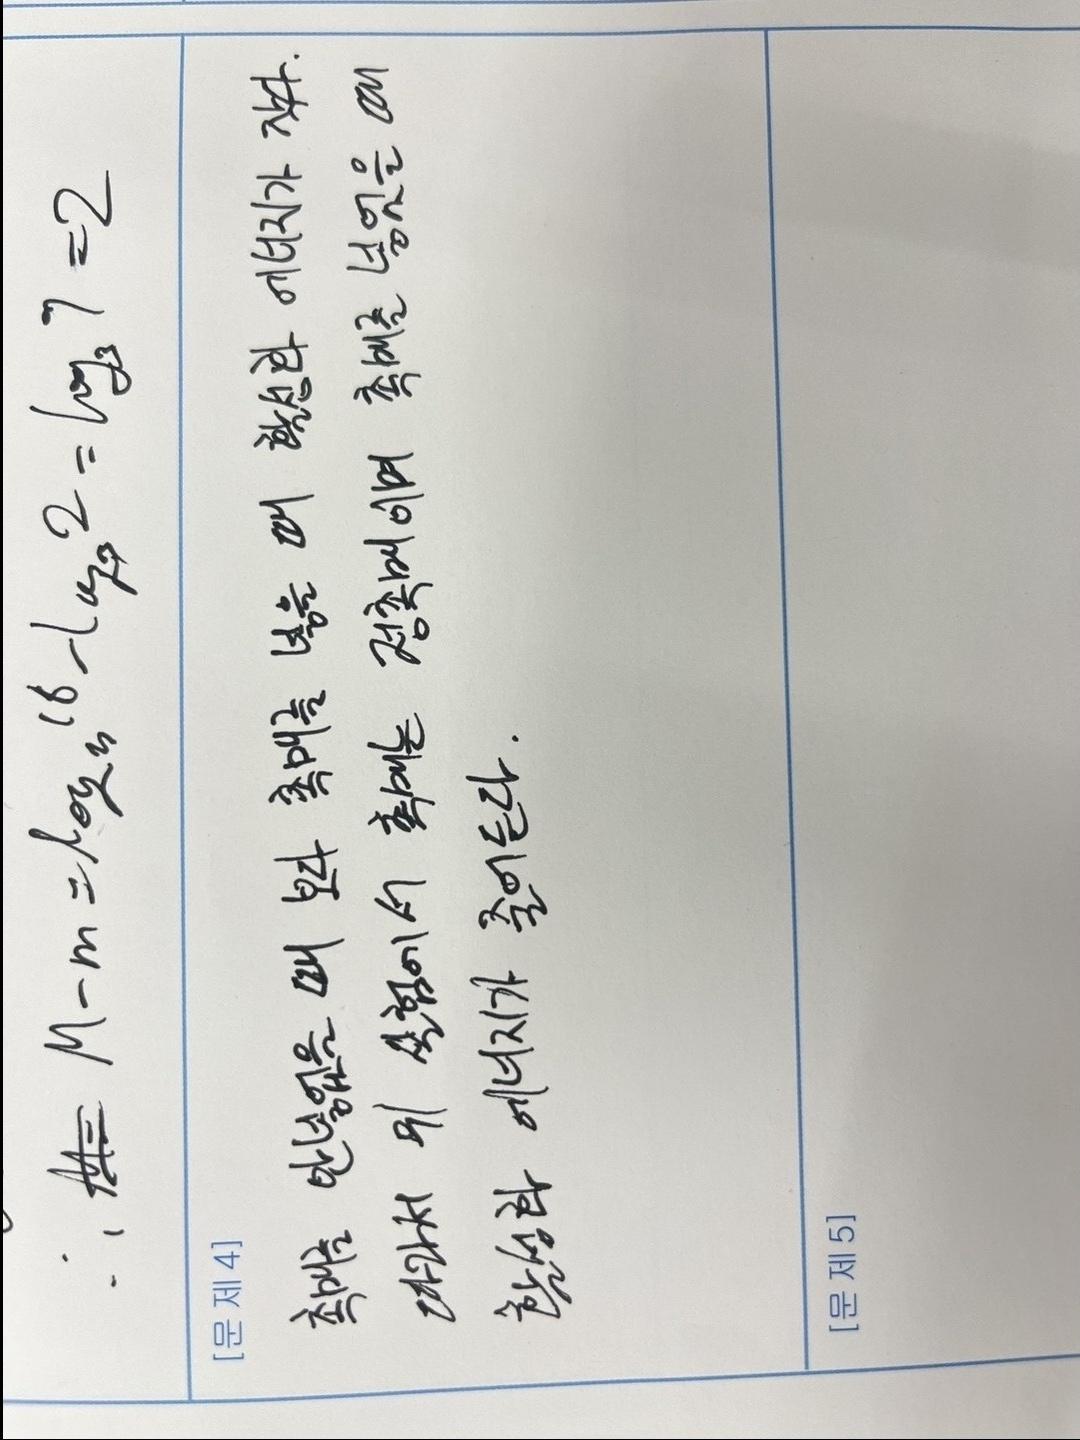 ∴ M-m = log₃16 - log₃2 = log₃ 7 = 2
[문 제 4]
촉매를 안넣었을 때 보다 촉매를 넣을 때 활성화 에너지가 작다.
따라서 위 실험에서 촉매는 정촉매이며 촉매를 넣었을 때
활성화 에너지가 줄어든다.
[문 제 5]